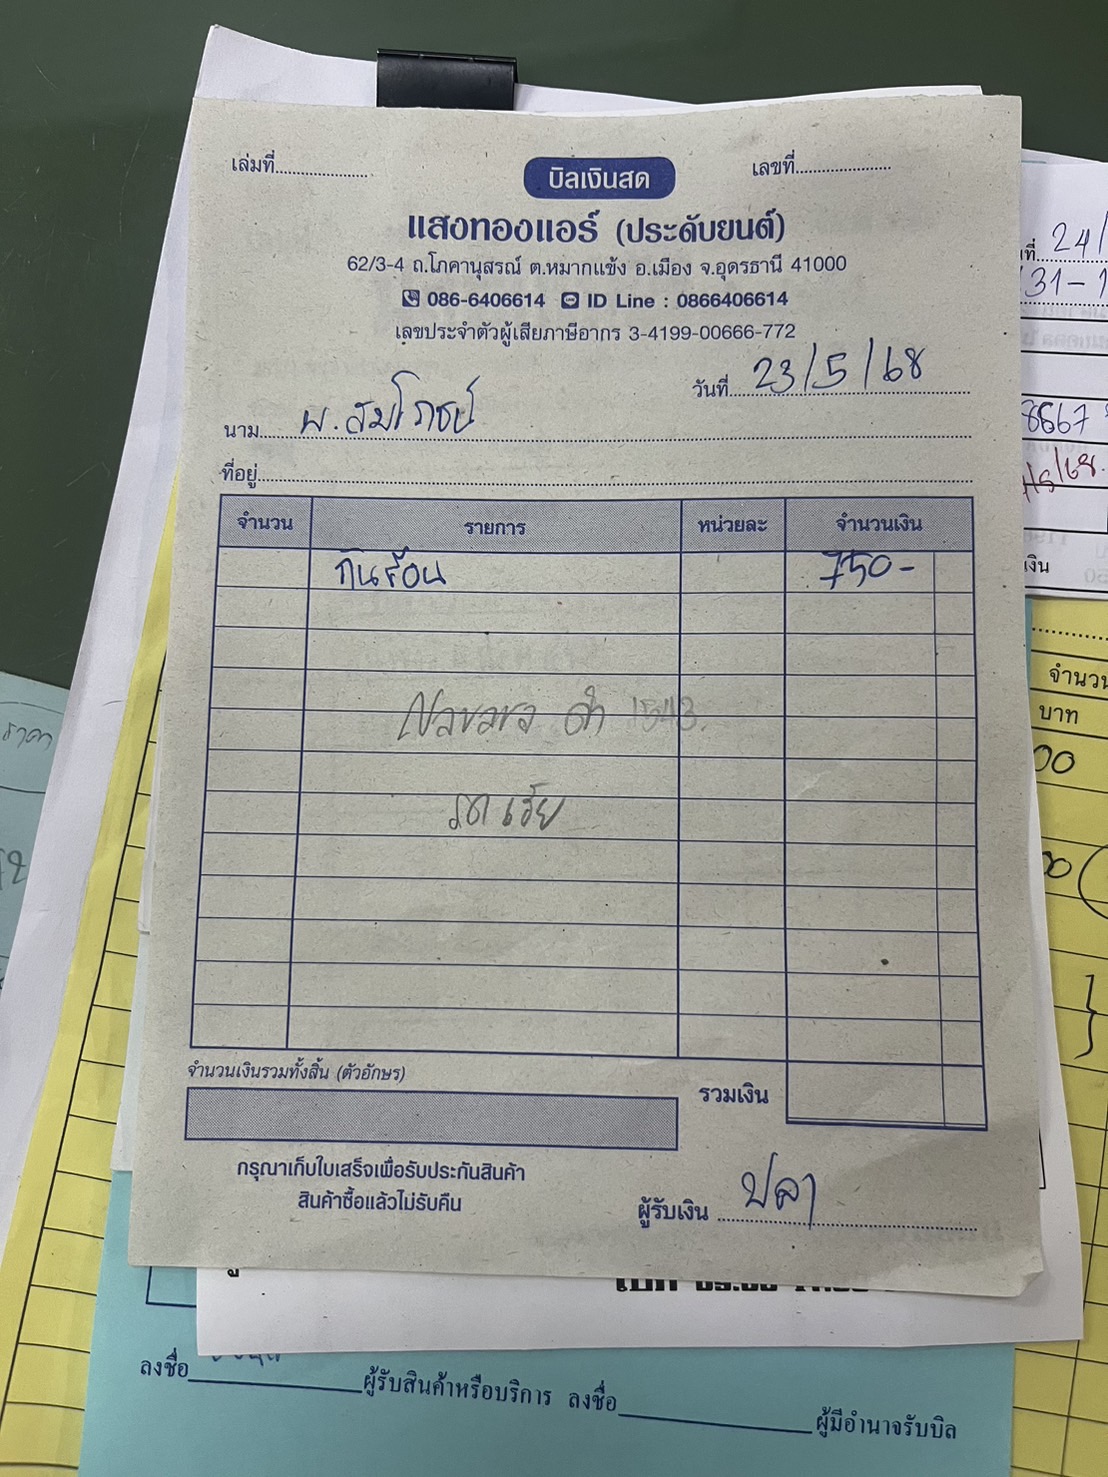 เล่มที่....................
เลขที่....................
บิลเงินสด
แสงทองแอร์ (ประดับยนต์)
62/3-4 ถ.โภคานุสรณ์ ต.หมากแข้ง อ.เมือง จ.อุดรธานี 41000
086-6406614 ID Line : 0866406614
เลขประจำตัวผู้เสียภาษีอากร 3-4199-00666-772
วันที่ 23/5/68
นาม พ. สมโภชน์
ที่อยู่
จำนวน รายการ หน่วยละ จำนวนเงิน
กันร้อน 750-
ดำ 1543
จำนวนเงินรวมทั้งสิ้น (ตัวอักษร)
รวมเงิน
กรุณาเก็บใบเสร็จเพื่อรับประกันสินค้า
สินค้าซื้อแล้วไม่รับคืน
ผู้รับเงิน ปลา
ลงชื่อ ผู้รับสินค้าหรือบริการ ลงชื่อ ผู้มีอำนาจรับบิล
24/
31-1
8667
/5/68.
เงิน
จำนวน
บาท
00
ราคา